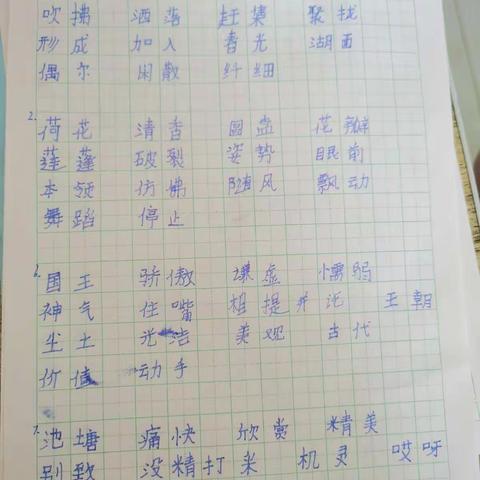 吹拂 洒落 赶集 聚拢
形成 加入 春光 湖面
偶尔 闲散 纤细
2. 荷花 清香 圆盘 花瓣
莲蓬 破裂 姿势 眼前
本领 仿佛 随风 飘动
舞蹈 停止
6. 国王 骄傲 谦虚 懦弱
神气 住嘴 相提并论 王朝
尘土 光洁 美观 古代
价值 动手
7. 池塘 痛快 欣赏 精美
别致 没精打采 机灵 哎呀